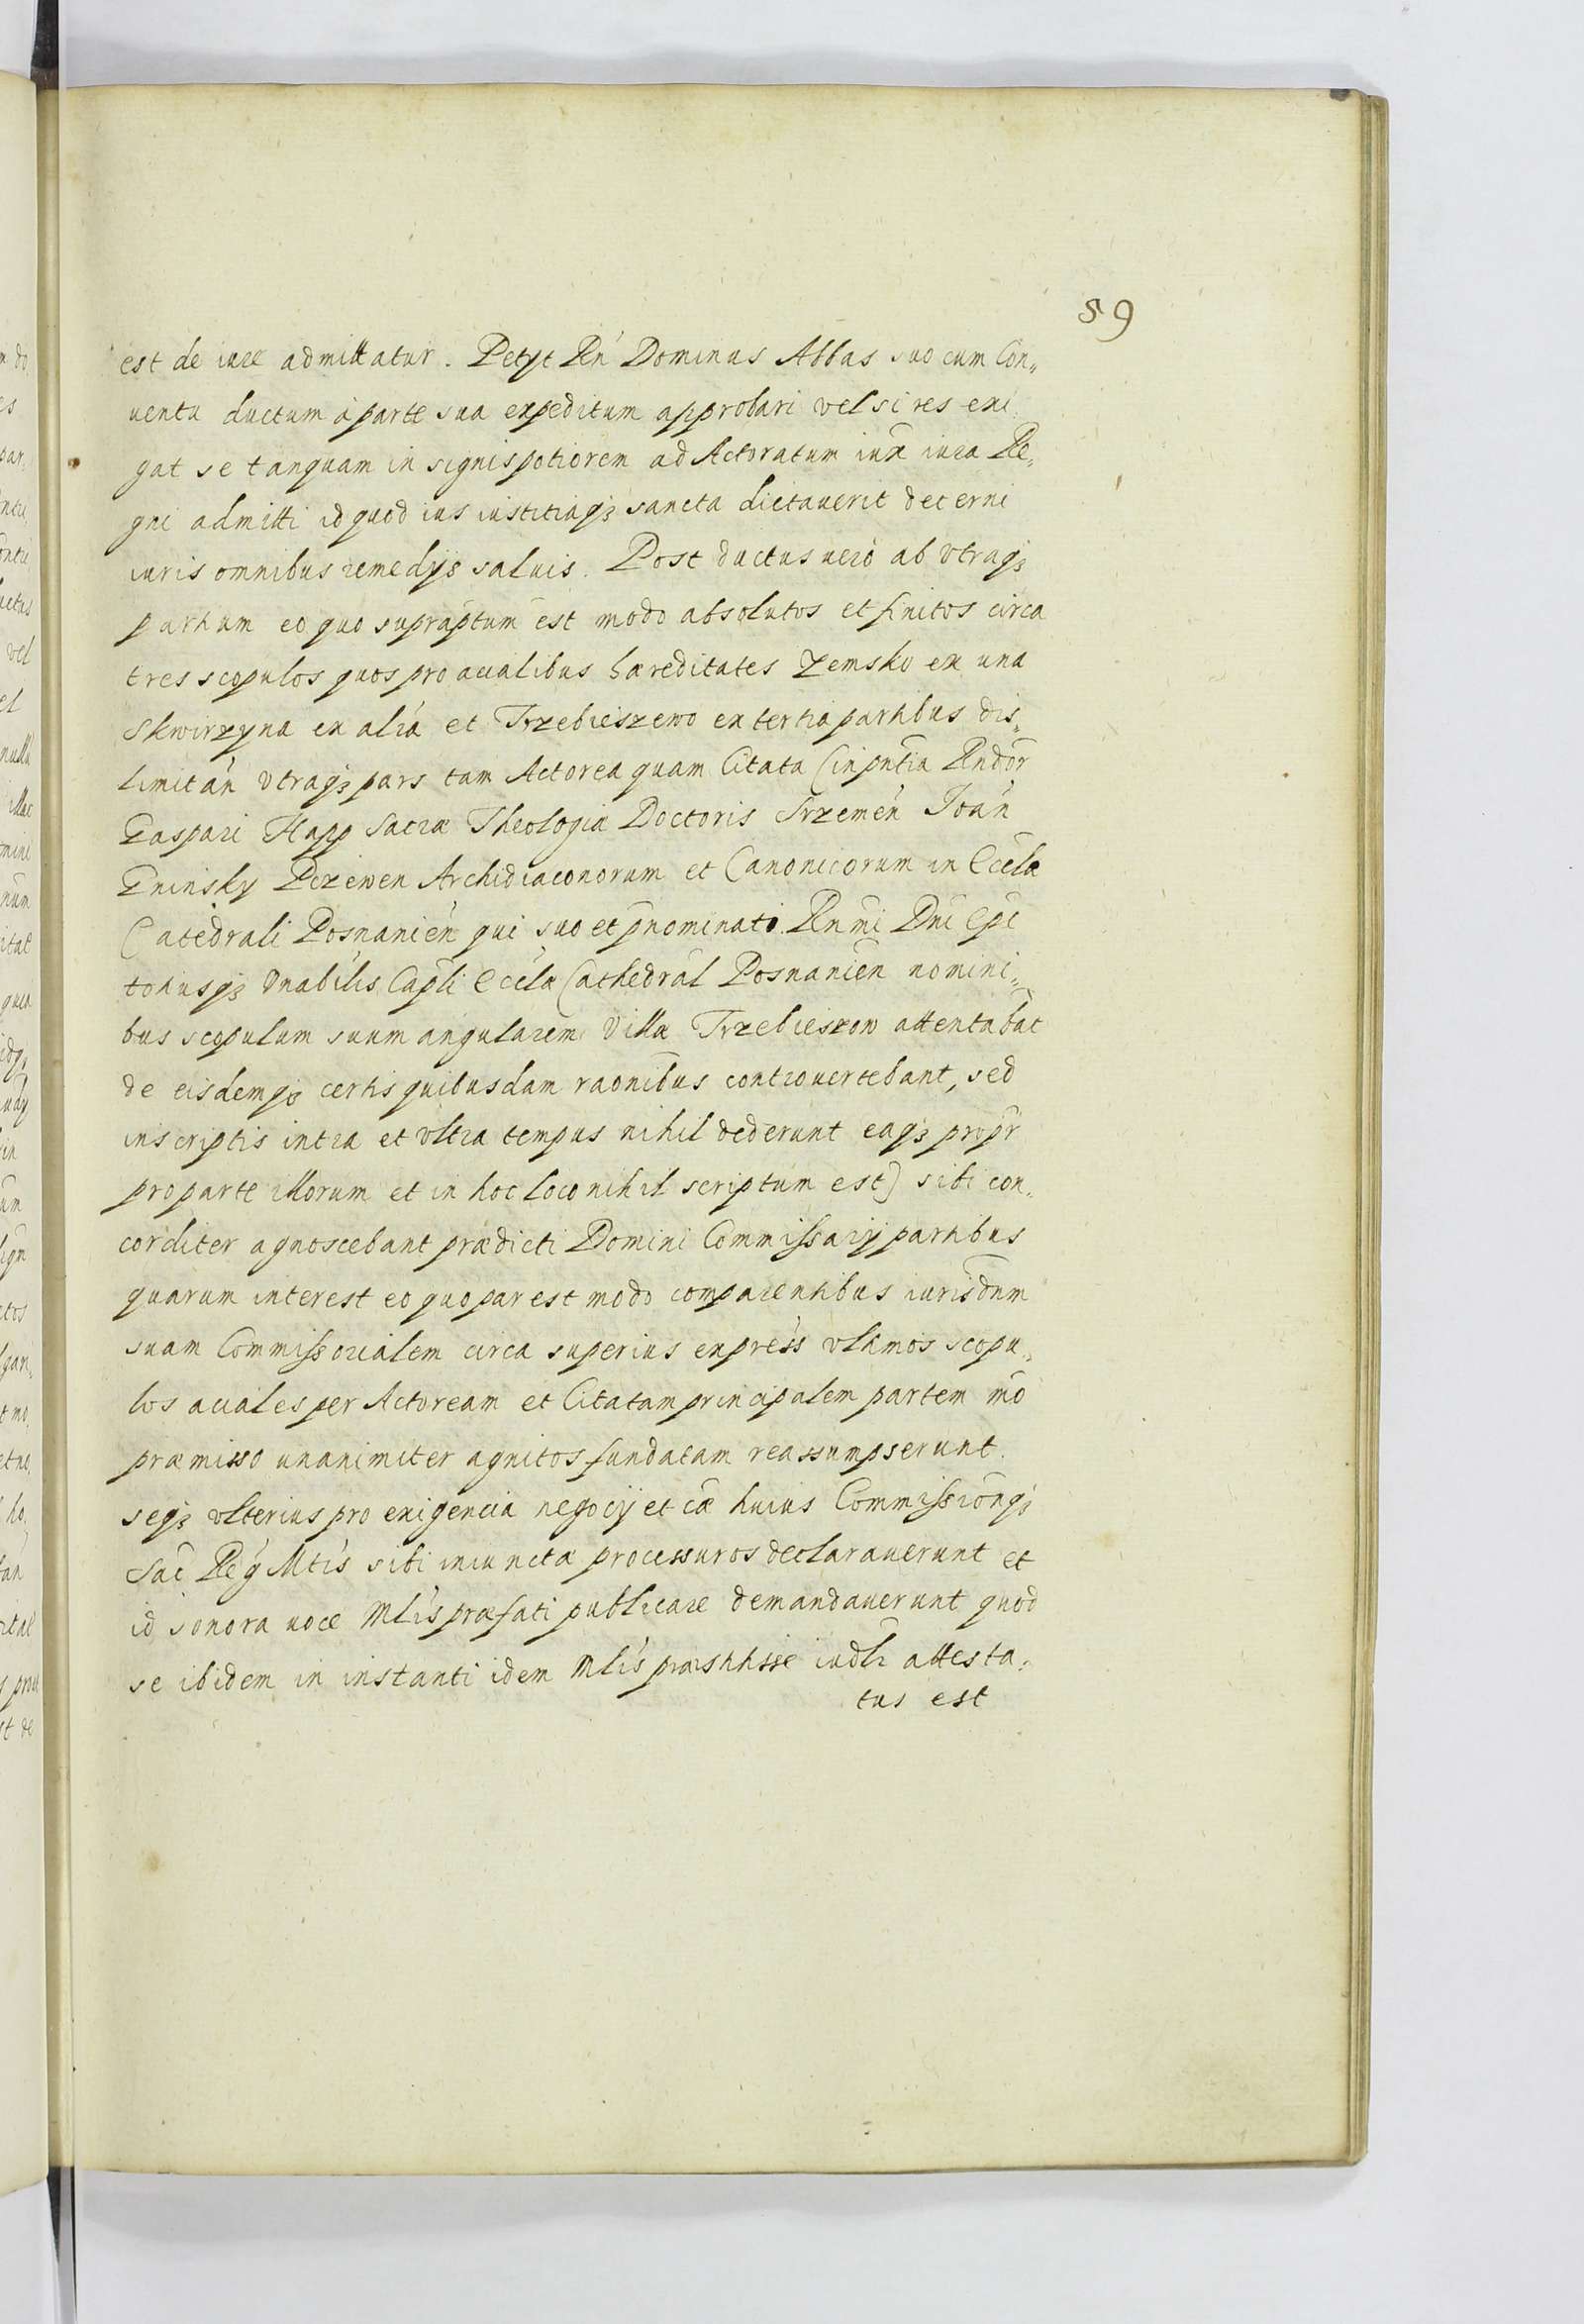 59
est de iure admittatur. Petyt Rn Dominus Abbas suo cum Con„
uentu ductum à parte sua expeditum approbari vel si res exi
gat se tanquam in signis potiorem ad Actoratum iux iura Re„
gni admitti id quod ius iustitiaqz sancta dictauerit decerni
iuris omnibus remedijs saluis. Post ductus uero ab vtraqz
partium eo quo supraptum est modo absolutos et finitos circa
tres scopulos quos pro acialibus hæreditates Zemsko ex una
Skwirzyna ex alia et Trzebieszewo ex tertia partibus dis„
limitan vtraqz pars tam Actorea quam Citata (in pntia Rndor
Gaspari Happ Sacræ Theologiæ Doctoris Srzemen Ioan
Gninsky Pczewen Archidiaconorum et Canonicorum in Eccla
Catedrali Posnanien qui suo et pnominati Rnmi Dni Epi
totiusqz Vnabilis Capli Eccla Cathedral Posnanien nomini„
bus scopulum suum angularem Villæ Trzebieszow attentabat
de eisdemqz certis quibusdam raonibus controuertebant, sed
inscriptis intra et vltra tempus nihil dederunt eaqz propr
pro parte illorum et in hoc loco nihil scriptum est) sibi con„
corditer agnoscebant prædicti Domini Commissarij partibus
quarum interest eo quo par est modo comparentibus iurisdnm
suam Commissorialem circa superius express vltimos scopu„
los aciales per Actoream et Citatam principalem partem mo
præmisso unanimiter agnitos fundatam reassumpserunt.
seqz vlterius pro exigencia negocij et cæ huius Commissionqz
Sac Reg Mtis sibi iniunctæ processuros declarauerunt et
id sonora uoce Mlis præfati publicare demandauerunt quod
se ibidem in instanti idem Mlis præstitisse iudlr attesta„
tus est